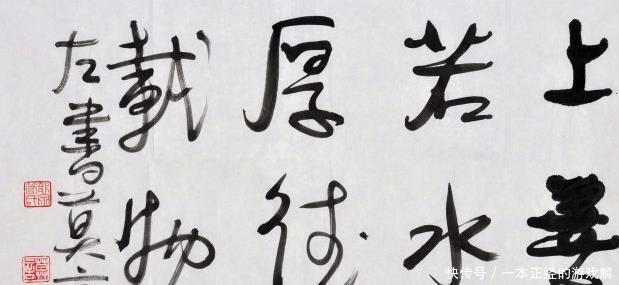 上善
若水
厚德
載物
左書莫
快传号 / 一本正经的游戏解